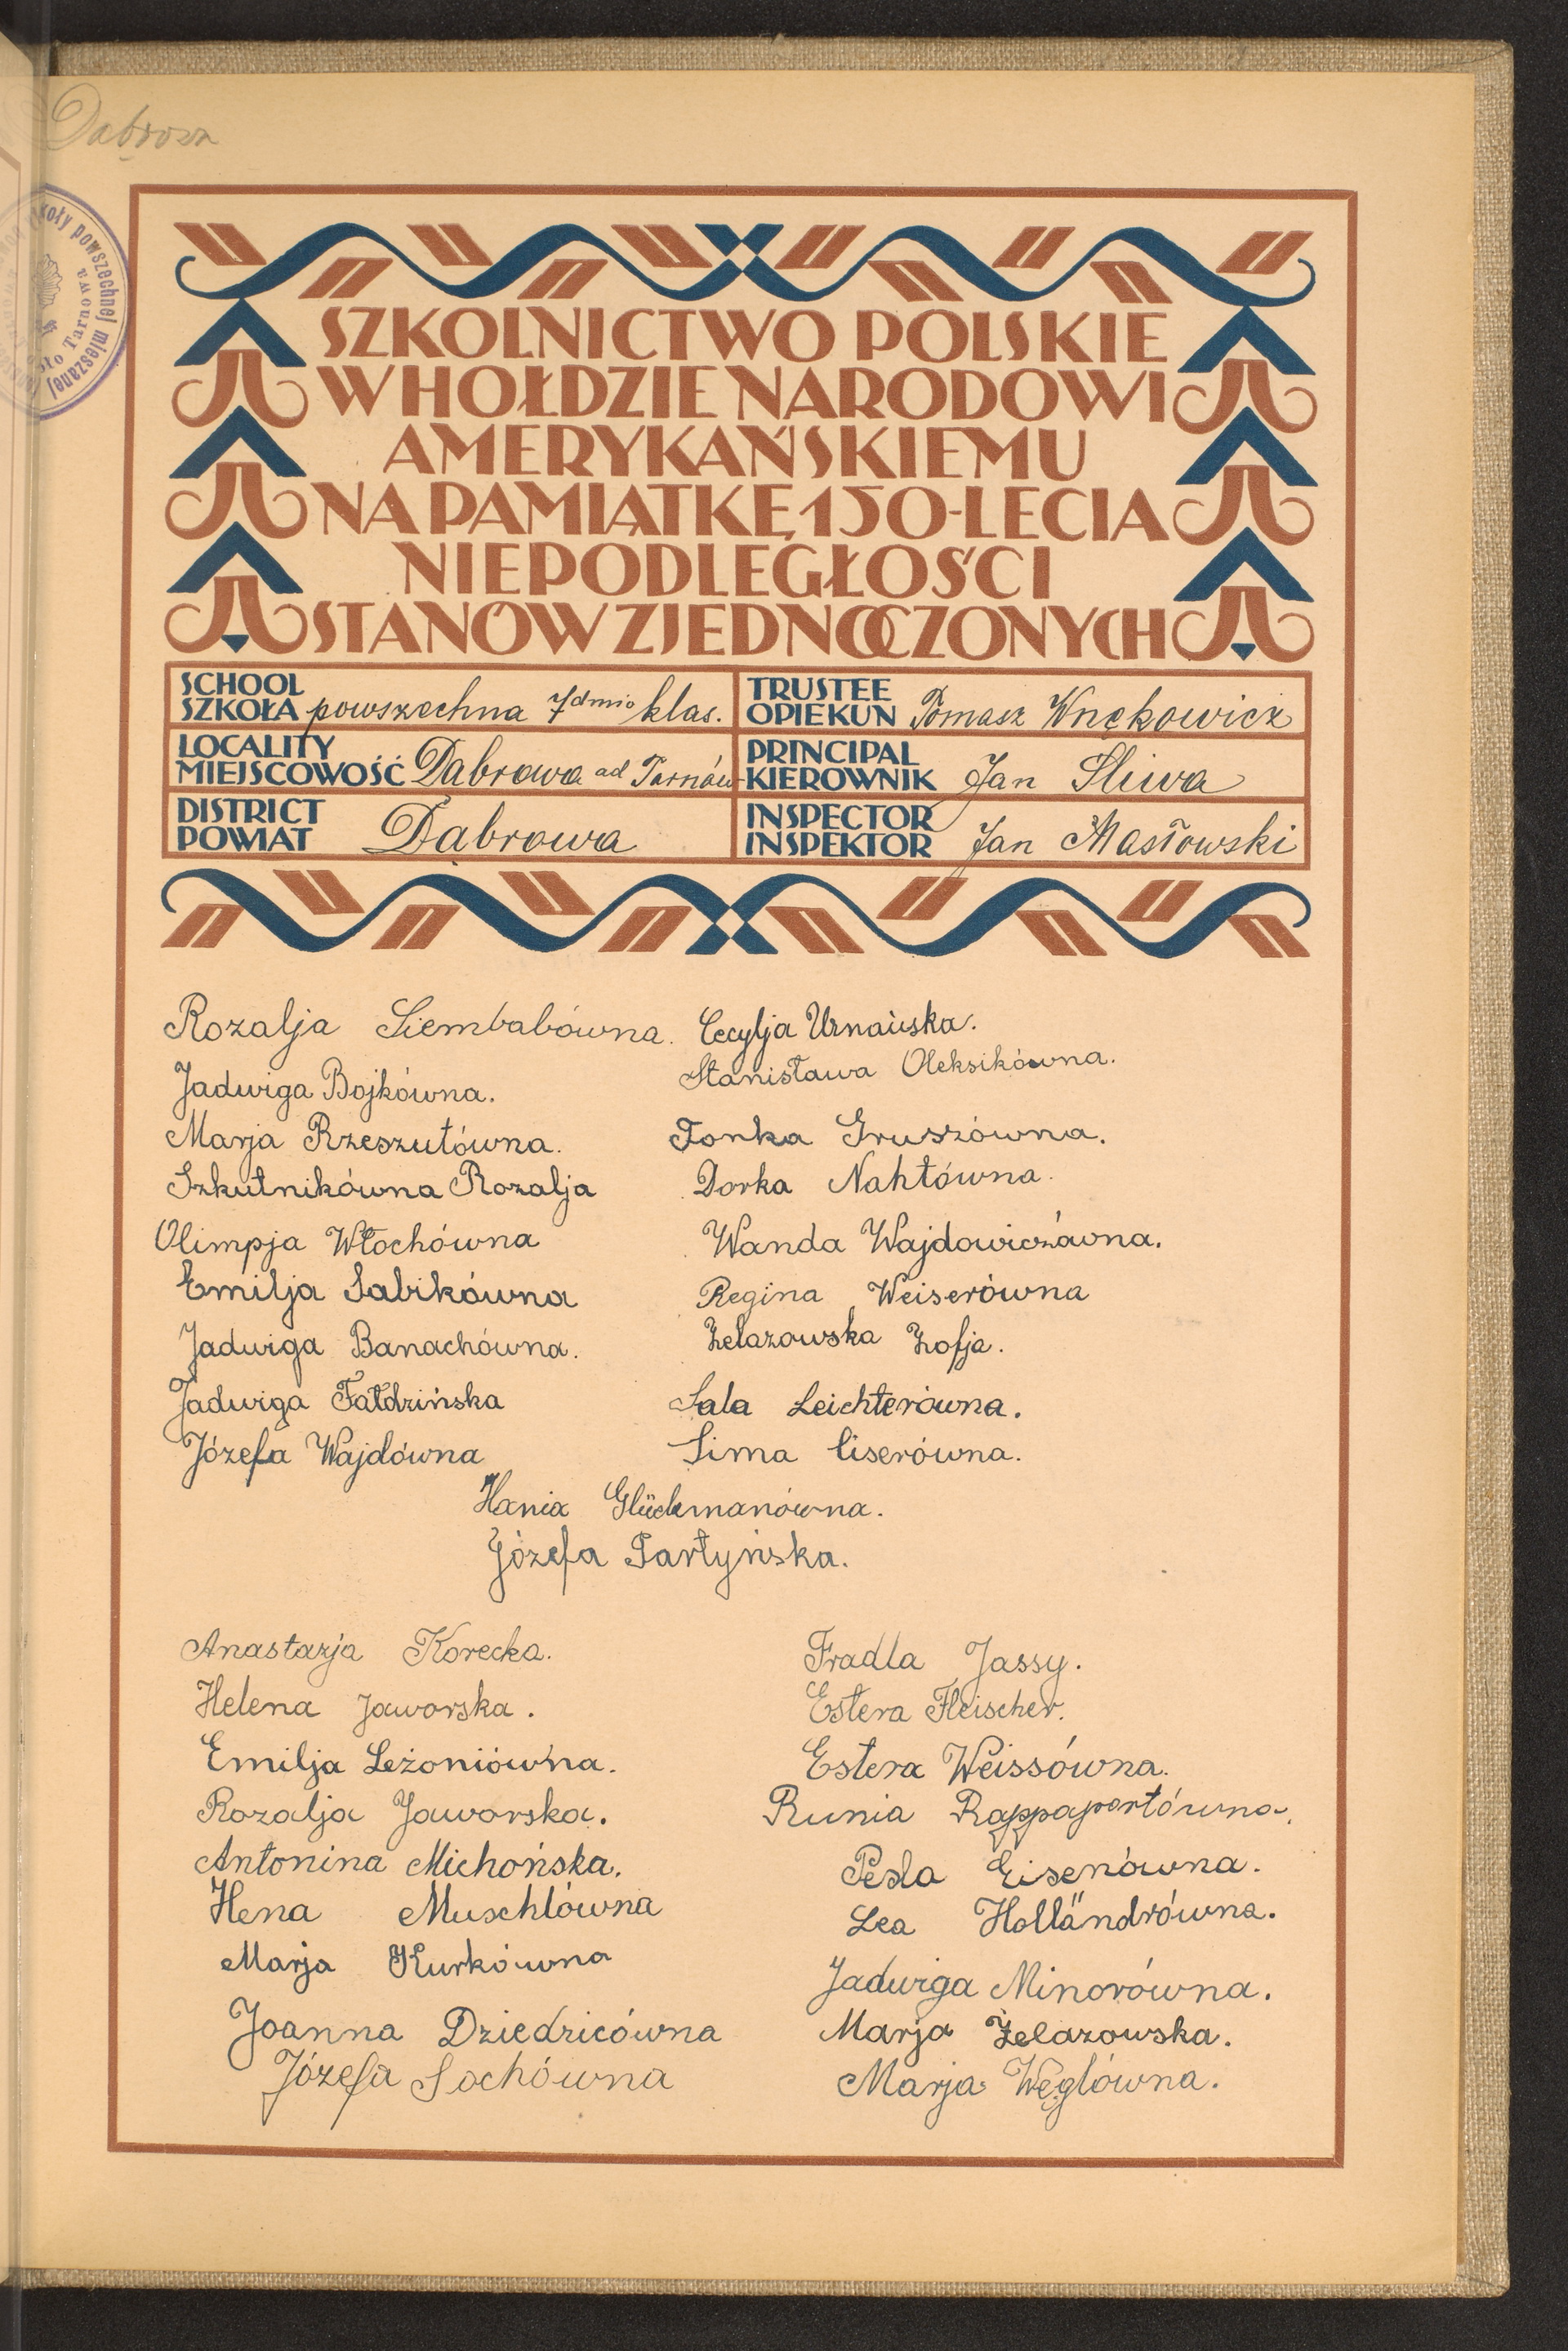 Dąbrowa
SZKOLNICTWO POLSKIE
W HOŁDZIE NARODOWI
AMERYKAŃSKIEMU
NA PAMIĄTKĘ 150-LECIA
NIEPODLEGŁOŚCI
STANÓW ZJEDNOCZONYCH
SCHOOL
SZKOŁA powszechna 7dmio klas.
TRUSTEE
OPIEKUN Tomasz Wnękowicz
LOCALITY
MIEJSCOWOŚĆ Dąbrowa ad Tarnów
PRINCIPAL
KIEROWNIK Jan Śliwa
DISTRICT
POWIAT Dąbrowa
INSPECTOR
INSPEKTOR Jan Masłowski
Rozalja Siembabówna.
Jadwiga Bojkówna.
Marja Rzeszutówna.
Szkutnikówna Rozalja
Olimpja Włochówna
Emilja Sabikówna
Jadwiga Banachówna.
Jadwiga Fałdzińska
Józefa Wajdówna
Cecylja Urnańska.
Stanisława Oleksikówna.
Tonka Gruszówna.
Dorka Nahtówna.
Wanda Wajdowiczówna.
Regina Weiserówna
Żelazowska Zofja.
Sala Leichterówna.
Sima Eiserówna.
Hania Glückmanówna.
Józefa Partyńska.
Anastazja Korecka.
Helena Jaworska.
Emilja Leżoniówna.
Rozalja Jaworska.
Antonina Michońska.
Hena Muschlówna
Marja Kurkówna
Joanna Dziedzicówna
Józefa Sochówna
Fradla Jassy.
Estera Fleischer.
Estera Weissówna.
Runia Rappaportówna.
Pesla Eisenówna.
Lea Holländrówna.
Jadwiga Minorówna.
Marja Żelazowska.
Marja Węglówna.